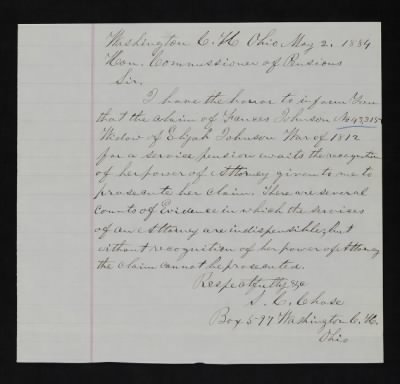 Washington C. H. Ohio May 2. 1884
Hon. Commissioner of Pensions
Sir.
I have the honor to inform You
that the claim of Frances Johnson No 43,315
Widow of Elijah Johnson War of 1812
for a service pension awaits the recognition
of her power of Attorney given to me to
prosecute her claim. There are several
counts of Evidence in which the services
of an Attorney are indispensible, but
without recognition of her power of Attorney
the claim cannot be prosecuted.
Respectfully &c
S. C. Chase
Box 597 Washington C. H.
Ohio